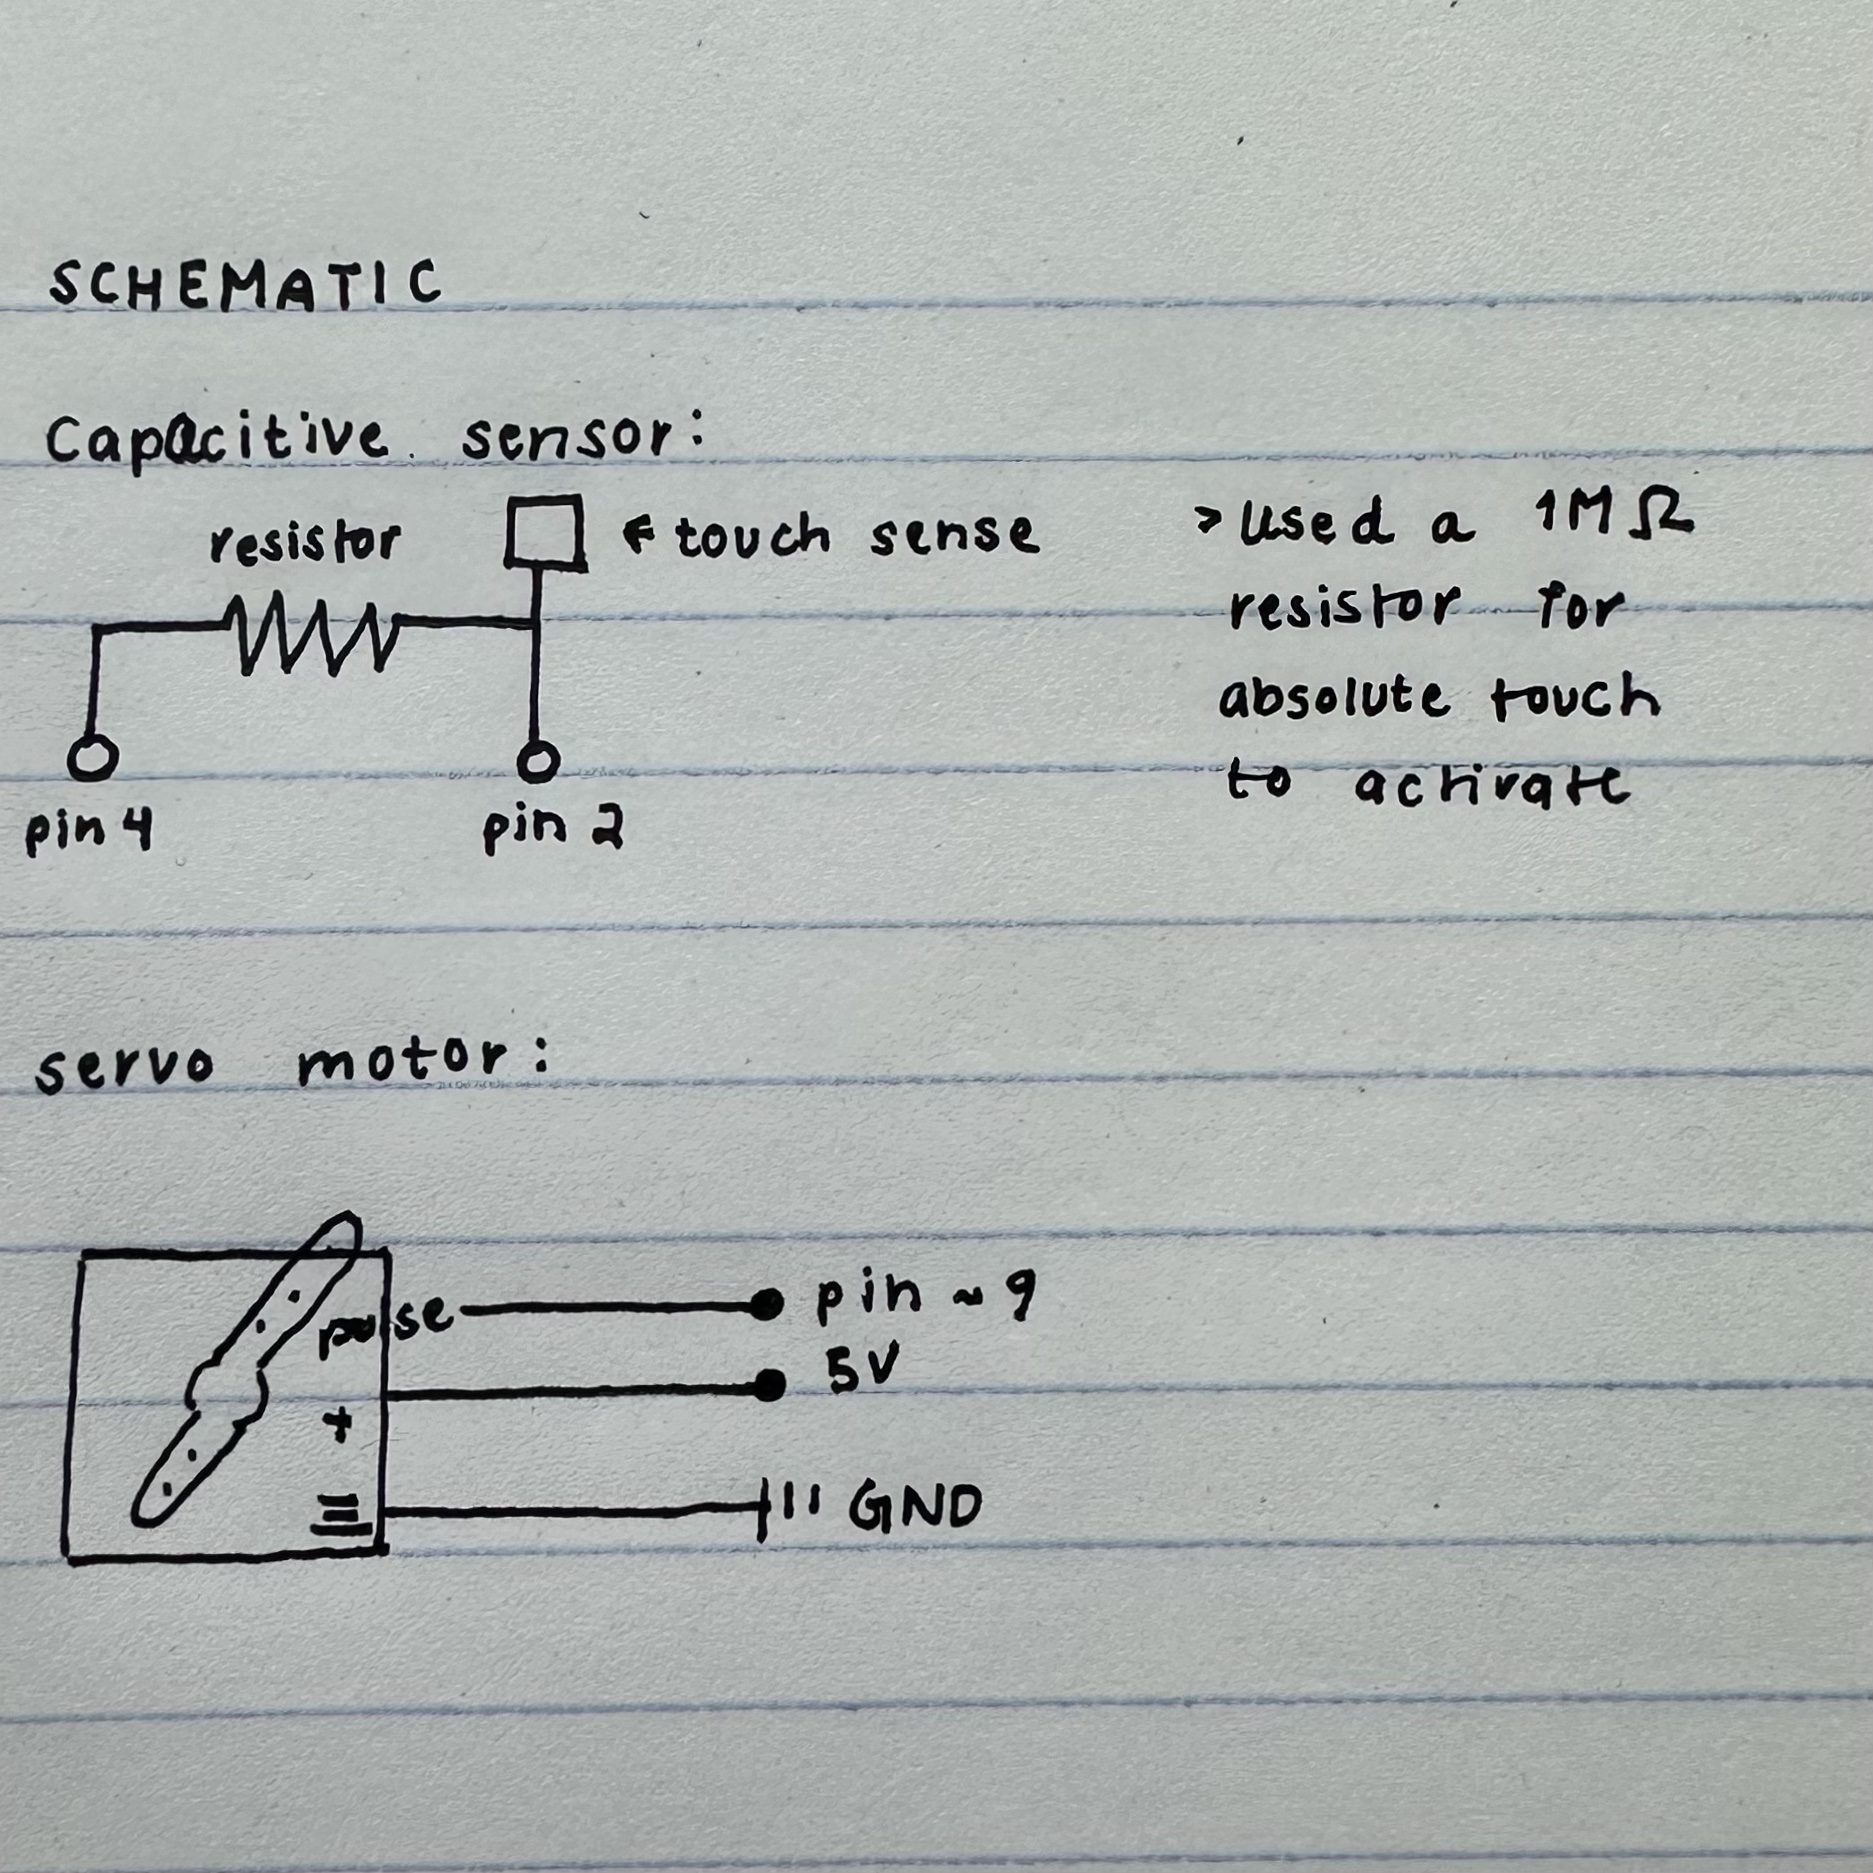 SCHEMATIC
Capacitive sensor:
resistor
← touch sense
pin 4
pin 2
> Used a 1MΩ
resistor for
absolute touch
to activate
servo motor:
pulse
pin ~ 9
+
5V
GND